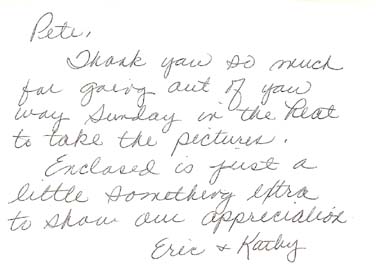 Pete,
Thank you so much
for going out of your
way Sunday in the heat
to take the pictures.
Enclosed is just a
little something extra
to show our appreciation
Eric + Kathy